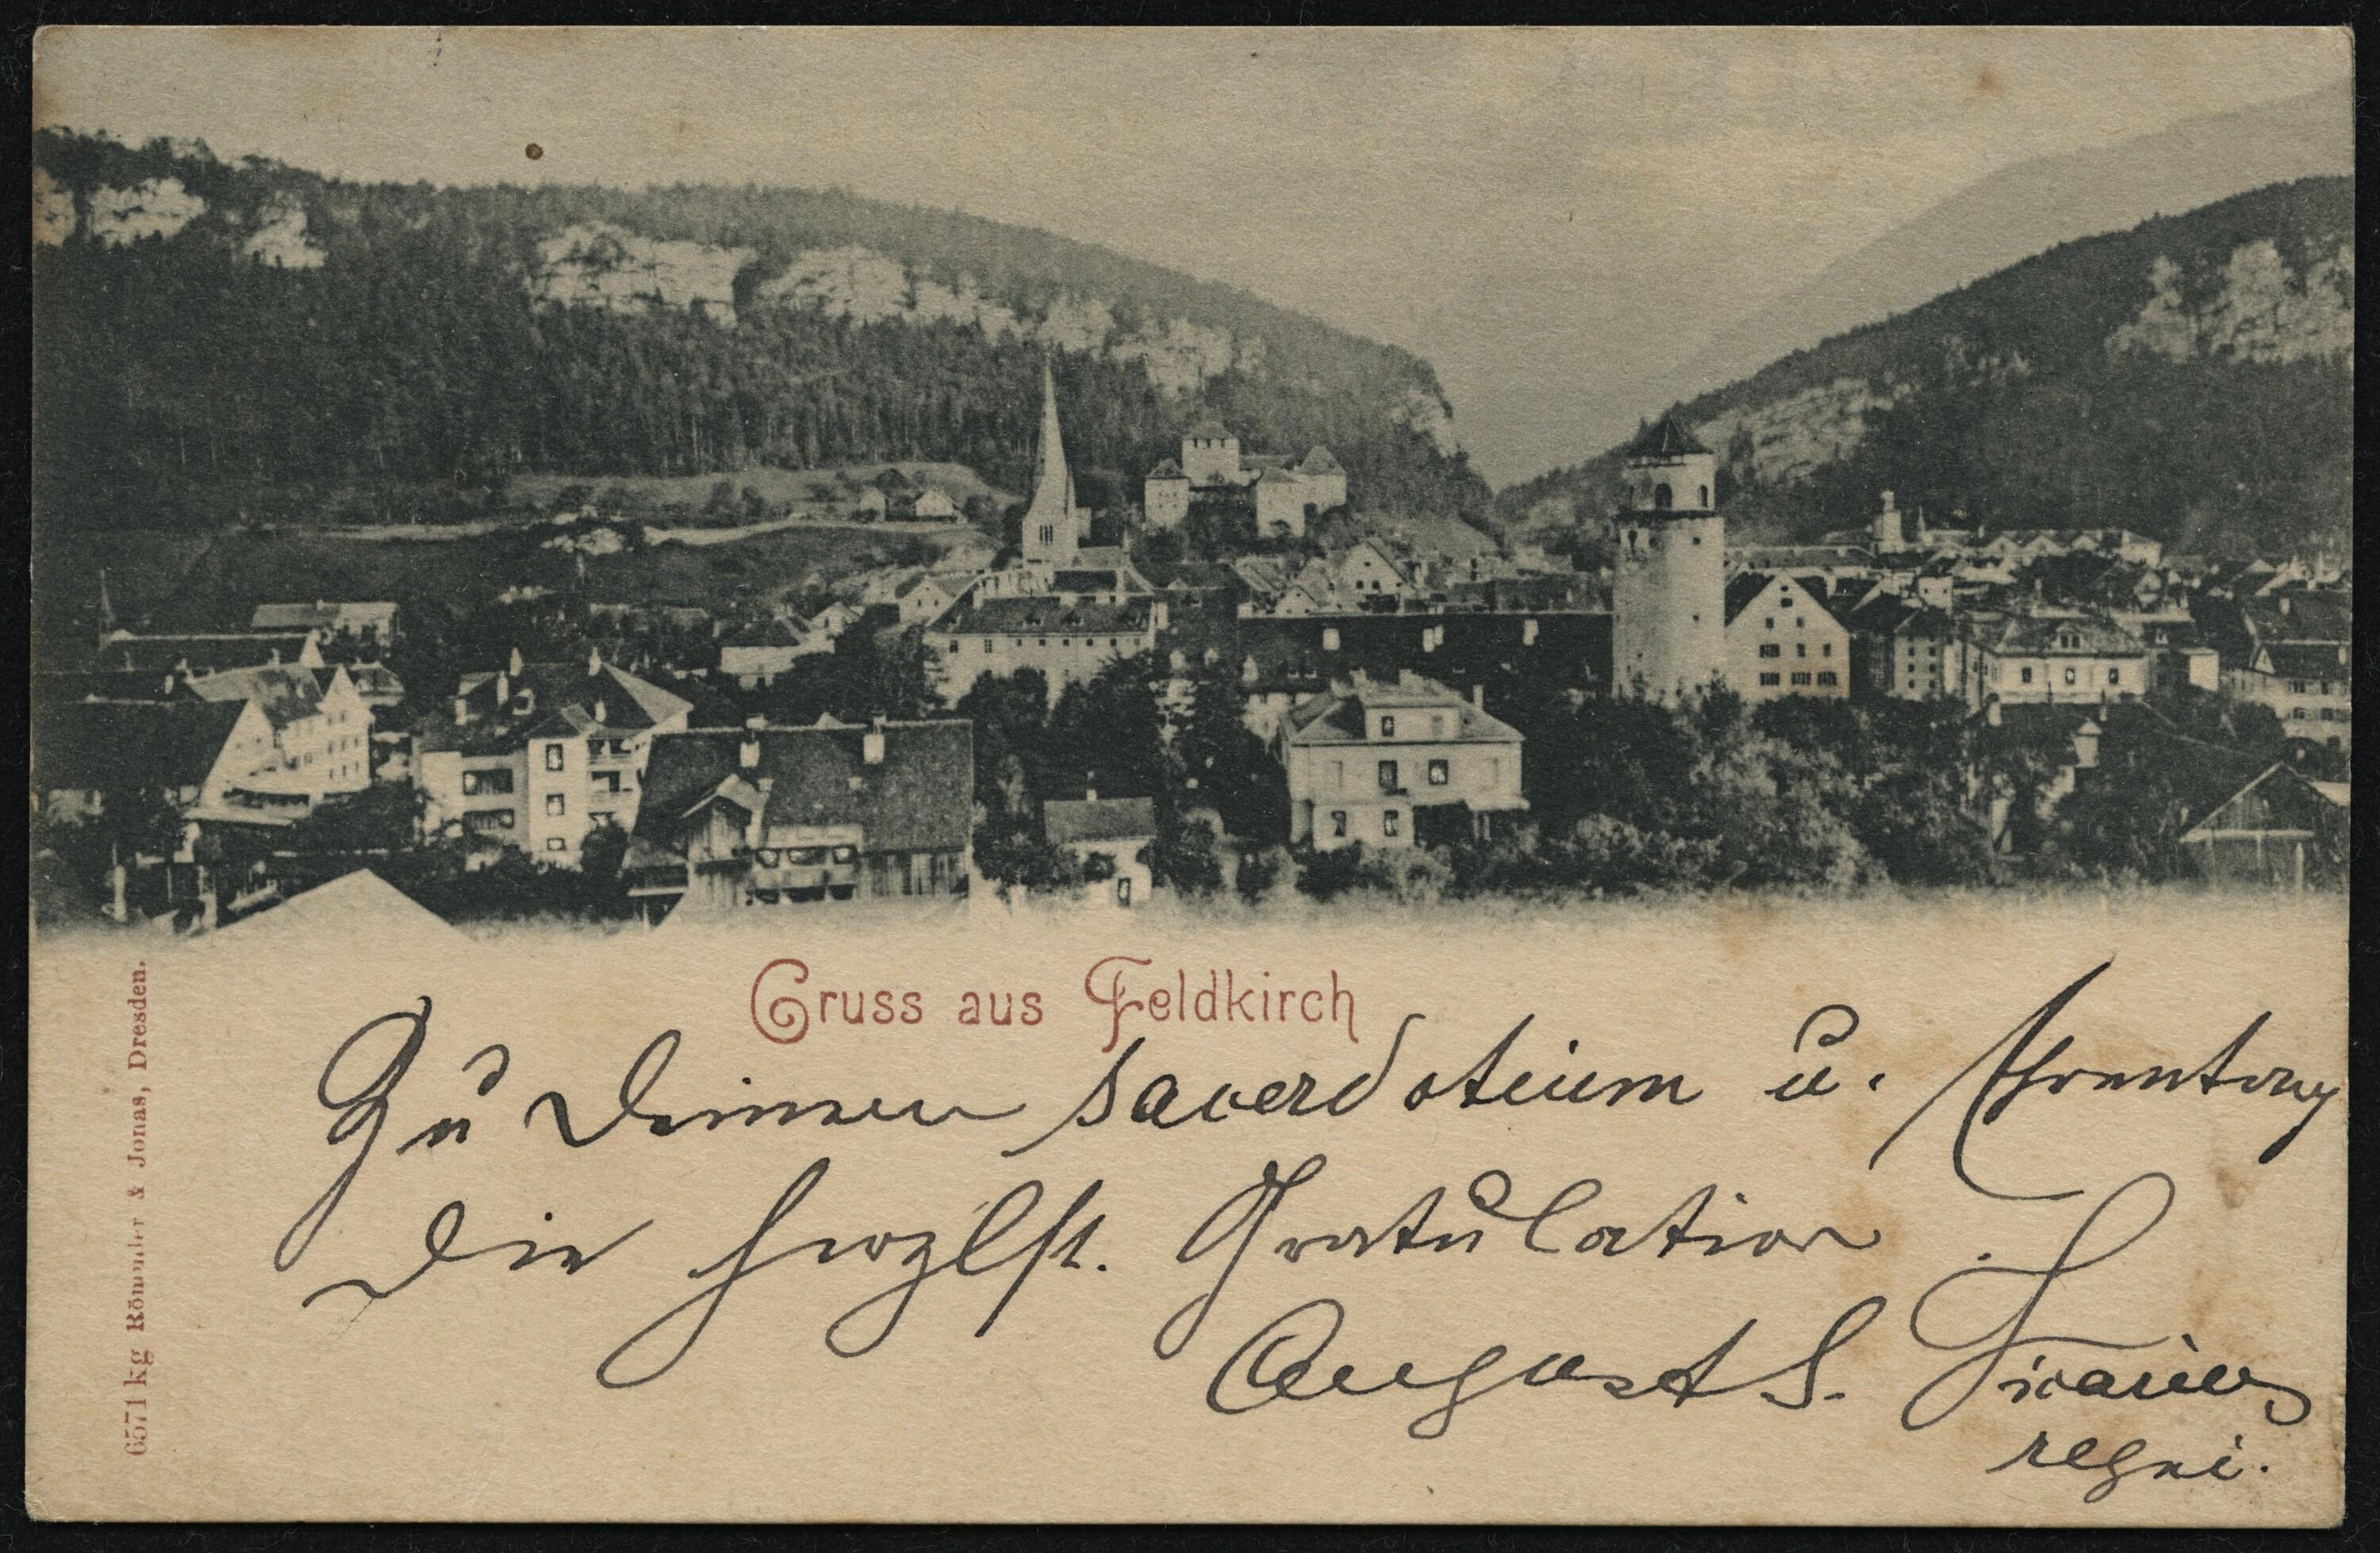 Gruss aus Feldkirch
Zu Deinem sacerdotium u.
die herzlst. Gratulation
August S.
regni.
6571 kg Römmler & Jonas, Dresden.